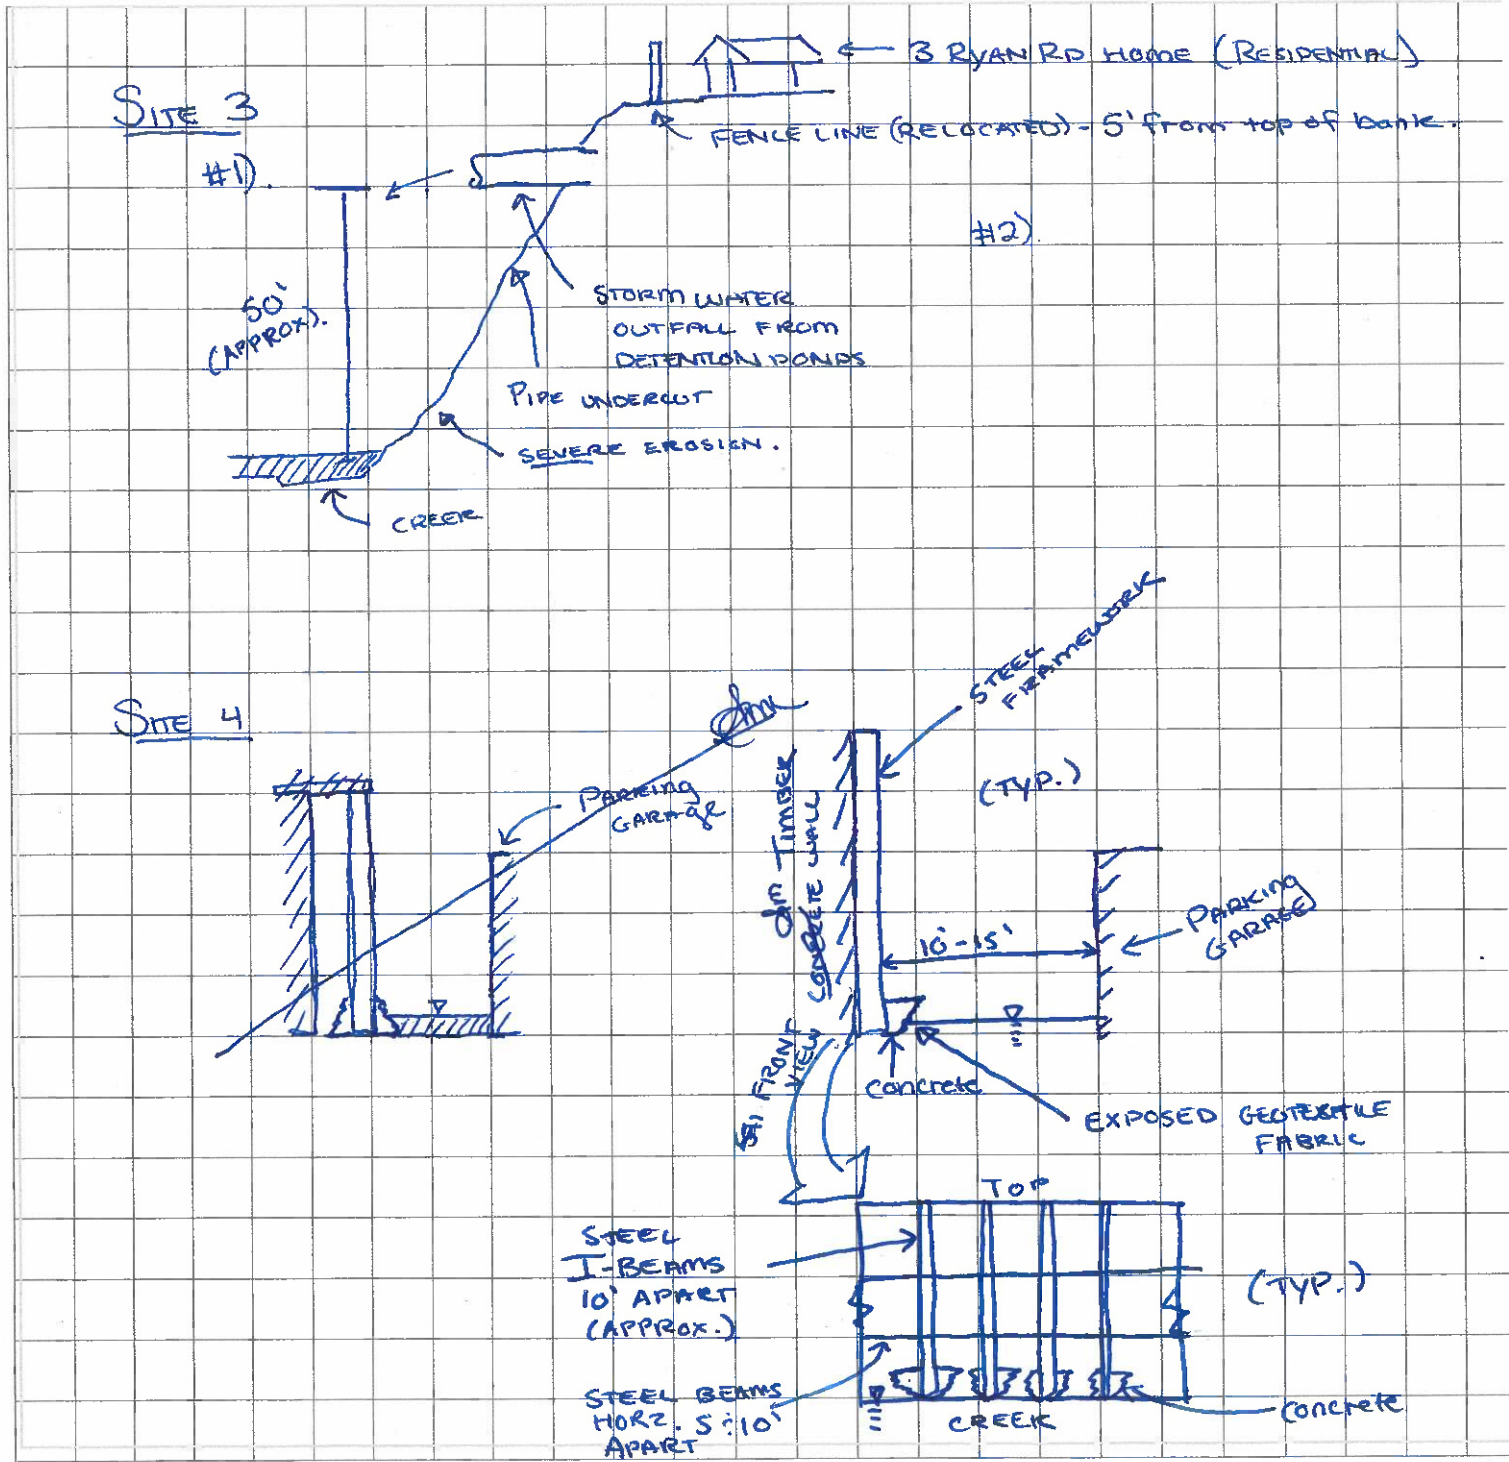 SITE 3
3 RYAN RD HOME (RESIDENTIAL)
FENCE LINE (RELOCATED) - 5' from top of bank.
#1).
#2).
50'
(APPROX).
STORM WATER
OUTFALL FROM
DETENTION PONDS
PIPE UNDERCUT
SEVERE EROSION.
CREEK
SITE 4
PARKING
GARAGE
STEEL
FRAMEWORK
(TYP.)
TIMBER
CONCRETE WALL
10'-15'
PARKING
GARAGE
FRONT
VIEW
concrete
EXPOSED GEOTEXTILE
FABRIC
TOP
STEEL
I-BEAMS
10' APART
(APPROX.)
(TYP.)
STEEL BEAMS
HORZ. 5-10'
APART
CREEK
concrete